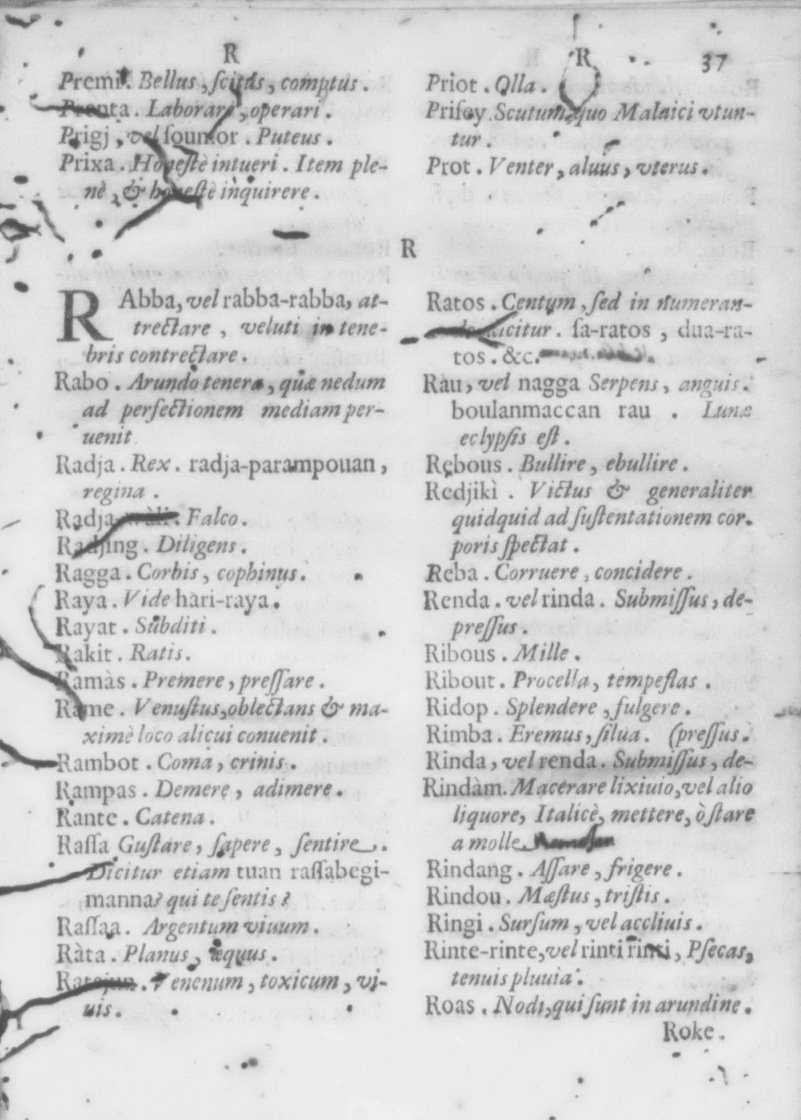 R
Premi. Bellus, ſcitus, comptus.
Prenta. Laborare, operari.
Prigj, vel ſoumor. Puteus.
Prixa. Honeſtè intueri. Item ple-
nè, & honeſtè inquirere.
R 37
Priot. Olla.
Priſey Scutum, quo Malaici vtun-
tur.
Prot. Venter, aluus, vterus.
R
RAbba, vel rabba-rabba, at-
trectare, veluti in tene-
bris contrectare.
Rabo. Arundo tenera, quæ nedum
ad perfectionem mediam per-
uenit
Radja. Rex. radja-parampouan,
regina.
Radja wàli. Falco.
Radjing. Diligens.
Ragga. Corbis, cophinus.
Raya. Vide hari-raya.
Rayat. Subditi.
Rakit. Ratis.
Ramàs. Premere, preſſare.
Rame. Venuſtus, oblectans & ma-
ximè loco alicui conuenit.
Rambot. Coma, crinis.
Rampas. Demere, adimere.
Rante. Catena.
Raſſa Guſtare, ſapere, ſentire.
Dicitur etiam tuan raſſabegi-
manna? qui te ſentis?
Raſſaa. Argentum viuum.
Ràta. Planus, æquus.
Ratejun. Venenum, toxicum, vi-
uis.
Ratos. Centum, ſed in numeran-
dicitur. ſa-ratos, dua-ra-
tos. &c.
Ràu, vel nagga Serpens, anguis.
boulanmaccan rau. Lunæ
eclypſis eſt.
Rebous. Bullire, ebullire.
Redjikì. Victus & generaliter
quidquid ad ſuſtentationem cor.
poris ſpectat.
Reba. Corruere, concidere.
Renda. vel rinda. Submiſſus, de-
preſſus.
Ribous. Mille.
Ribout. Procella, tempeſtas.
Ridop. Splendere, fulgere.
Rimba. Eremus, ſilua. (preſſus.
Rinda, vel renda. Submiſſus, de-
Rindàm. Macerare lixiuio, vel alio
liquore, Italicè, mettere, ò ſtare
a molle
Rindang. Aſſare, frigere.
Rindou. Mæſtus, triſtis.
Ringi. Surſum, vel accliuis.
Rinte-rinte, vel rinti rinti, Pſecas,
tenuis pluuia.
Roas. Nodi, qui ſunt in arundine.
Roke.